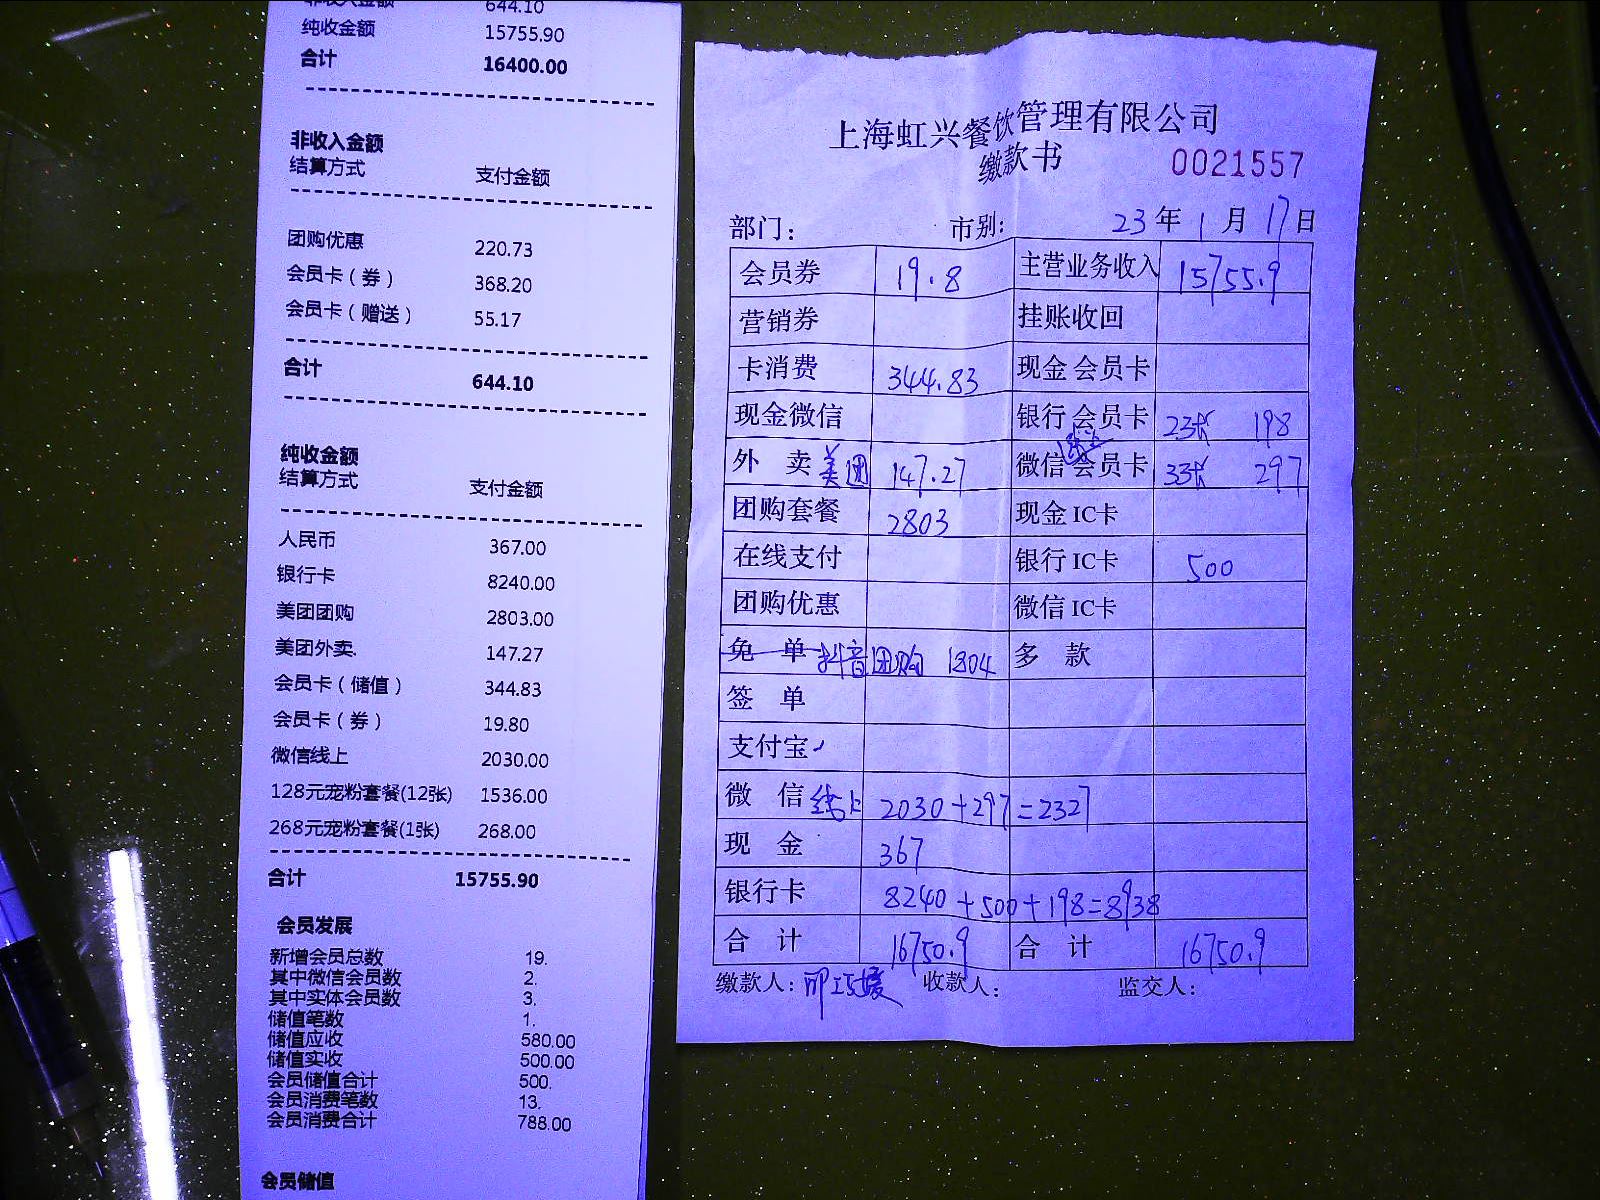 非收入金额 644.10
纯收金额 15755.90
合计 16400.00
非收入金额
结算方式 支付金额
团购优惠 220.73
会员卡（券） 368.20
会员卡（赠送） 55.17
合计 644.10
纯收金额
结算方式 支付金额
人民币 367.00
银行卡 8240.00
美团团购 2803.00
美团外卖 147.27
会员卡（储值） 344.83
会员卡（券） 19.80
微信线上 2030.00
128元宠粉套餐(12张) 1536.00
268元宠粉套餐(1张) 268.00
合计 15755.90
会员发展
新增会员总数 19.
其中微信会员数 2.
其中实体会员数 3.
储值笔数 1.
储值应收 580.00
储值实收 500.00
会员储值合计 500.
会员消费笔数 13.
会员消费合计 788.00
会员储值
上海虹兴餐饮管理有限公司
缴款书 0021557
部门： 市别： 23年1月17日
会员券 19.8 主营业务收入 15755.9
营销券 挂账收回
卡消费 344.83 现金 会员卡
现金微信 银行 会员卡 23张 198
外 卖 美团 147.27 微信 会员卡 33张 297
团购套餐 2803 现金 IC卡
在线支付 银行 IC卡 500
团购优惠 微信 IC卡
免 单 抖音团购 1804 多 款
签 单
支付宝
微 信 线上 2030+297=2327
现 金 367
银行卡 8240+500+198=8938
合 计 16750.9 合 计 16750.9
缴款人： 收款人： 监交人：